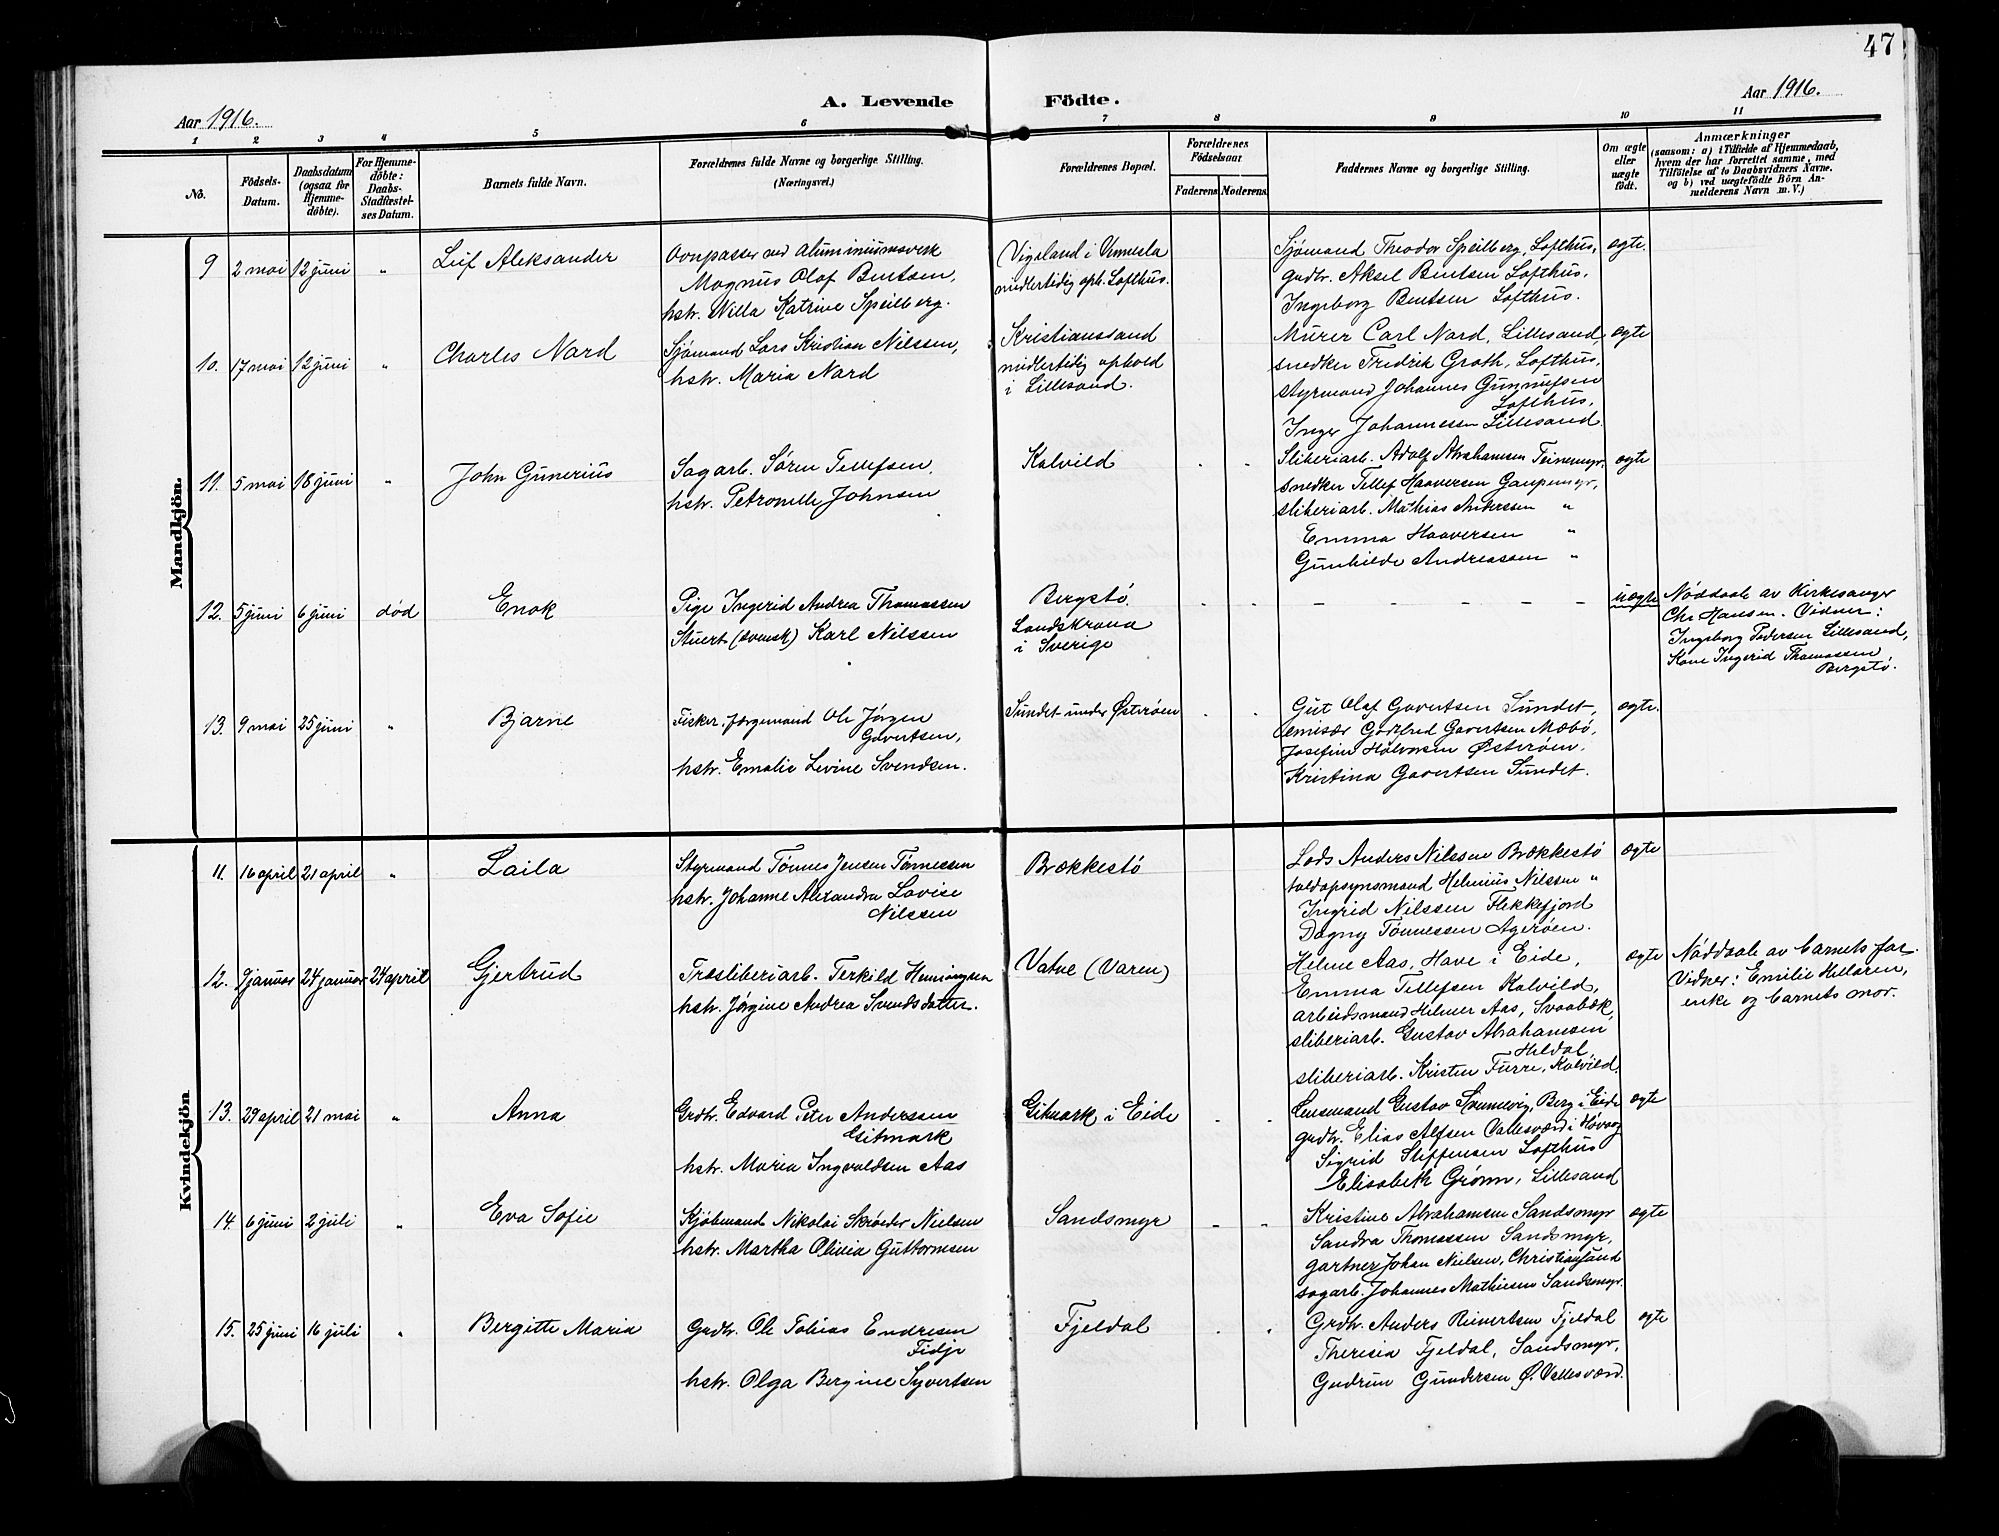 47
Aar 1916.
A. Levende Födte.
Aar 1916.
1 2 3 4 5 6 7 8 9 10 11
No.
Födsels-Datum.
Daabsdatum (ogsaa for Hjemmedöbte).
For Hjemmedöbte: Daabs-Stadfæstelses Datum.
Barnets fulde Navn.
Forældrenes fulde Navne og borgerlige Stilling. (Næringsvei.)
Forældrenes Bopæl.
Forældrenes Födselsaar
Faderens. Moderens.
Faddernes Navne og borgerlige Stilling.
Om ægte eller uægte födt.
Anmærkninger
(saasom: a) i Tilfælde af Hjemmedaab, hvem der har forrettet samme, med Tilföielse af to Daabsvidners Navne. og b) ved uægtefödte Börn Anmelderens Navn m. V.)
Mandkjön.
9 2 mai 12 juni " Leif Aleksander
Ovnpasser ved Aluminiumsverk
Magnus Olaf Bentsen,
hstr. Willa Katrine Speilberg.
Vigeland i Vennesla
midlertidig oph. Lofthus.
Sjømand Theodor Speilberg, Lofthus,
grdbr. Aksel Bentsen Lofthus,
Ingeborg Bentsen Lofthus.
ægte.
10. 17 mai 12 juni " Charles Nard
Sjømand Lars Kristian Nilssen,
hstr. Maria Nard
Kristianssand
midlertidig ophold
i Lillesand.
Murer Carl Nard, Lillesand
snedker Fredrik Groth, Lofthus,
styrmand Johannes Gunnufsen
Lofthus,
Inger Johannessen Lillesand.
ægte
11. 5 mai 18 juni " John Gunerius
Sagarb. Søren Tellefsen,
hstr. Petronelle Johnsen
Kalvild
Sliberiarb. Adolf Abrahamsen Teinemyr,
snedker Tellef Haaversen Gaupemyr,
sliberiarb. Mathias Anderssen "
Emma Haaversen "
Gunhilde Andreassen "
ægte
12. 5 juni 6 juni død Enok
Pige Ingerid Andrea Thomassen
Stuert (svensk) Karl Nilssen
Bergstø.
Landskrona
i Sverige
uægte
Nøddaab av Kirkesanger
Chr Hansen. Vidner:
Ingeborg Pedersen Lillesand,
Kone Ingerid Thomassen
Bergstø.
13. 9 mai 25 juni " Bjarne
Fisker, jægermand Ole Jørgen
Govertsen,
hstr. Emalie Levine Svendsen.
Sundet under Østerøen
Gut Olaf Govertsen Sundet,
emisær Godtfred Govertsen Mæbø,
Josefine Halvorsen Østerøen.
Kristina Govertsen Sundet.
ægte.
Kvindekjön
11. 16 april 21 april " Laila
Styrmand Tønnes Jensen Tønnessen
hstr. Johanne Alexandra Lovise
Nilssen
Brækkestø
Lods Anders Nilssen Brækkestø
toldopsynsmand Helmius Nilssen "
Ingrid Nilssen Flekkefjord
Dagny Tønnessen Agerøen.
ægte
12. 9 januar 24 januar 24 april Gjertrud
Træsliberiarb. Terkild Henningsen
hstr. Jørgine Andrea Svendsdatter.
Vatne (Varen)
Helene Aas, Have i Eide,
Emma Tellefsen Kalvild,
arbeidsmand Helmer Aas, Svaabæk,
sliberiarb. Gustav Abrahamsen
Heldal
sliberiarb. Kristen Furre, Kalvild.
ægte
Nøddaab av barnets far
Vidner: Emilie Helløren,
enke og barnets mor.
13. 29 april 21 mai " Anna
Grdbr. Edvard Peter Anderssen
Gitmark
hstr. Maria Ingvaldsen Aas
Gitmark i Eide
Lensmand Gustav Svennevig, Berg i Eide
grdbr. Elias Alfsen Vallesværd i Høvaag
Sigrid Steffensen Lofthus
Elisabeth Grønn, Lillesand
ægte
14. 6 juni 2 juli " Eva Sofie
Kjøbmand Nikolai Skrøder Nielsen
hstr. Martha Olivia Guttormsen
Sandsmyr
Kristine Abrahamsen Sandsmyr
Sandra Thomassen Sandsmyr,
gartner Johan Nielsen, Christianssand
sagarb. Johannes Mathisen Sandsmyr.
ægte
15. 25 juni 16 juli " Bergitte Maria
Grdbr. Ole Tobias Endresen
Fidje
hstr. Olga Bergine Syvertsen
Fjeldal
Grdbr. Anders Reiertsen Fjeldal
Theresia Fjeldal, Sandsmyr,
Gudrun Gundersen Ø. Vallesværd.
ægte